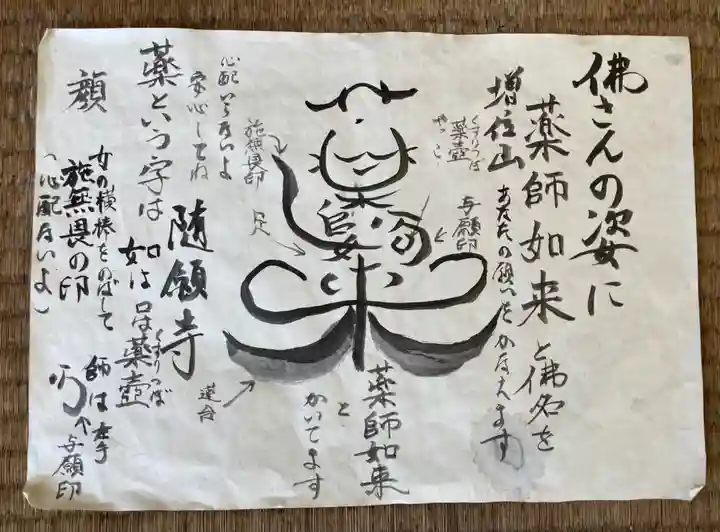 佛さんの姿に
薬師如来と佛名を
増位山
あなたの願いをかなえます
くすりつぼ
薬壺
やっこ
与願印
薬師如来
と
かいてます
施無畏印
足
蓮台
心配いらないよ
安心してね
随願寺
薬という字は
如は口は薬壺
くすりつぼ
師は右手
与願印
顔
女の横棒をのばして
施無畏の印
(心配ないよ)